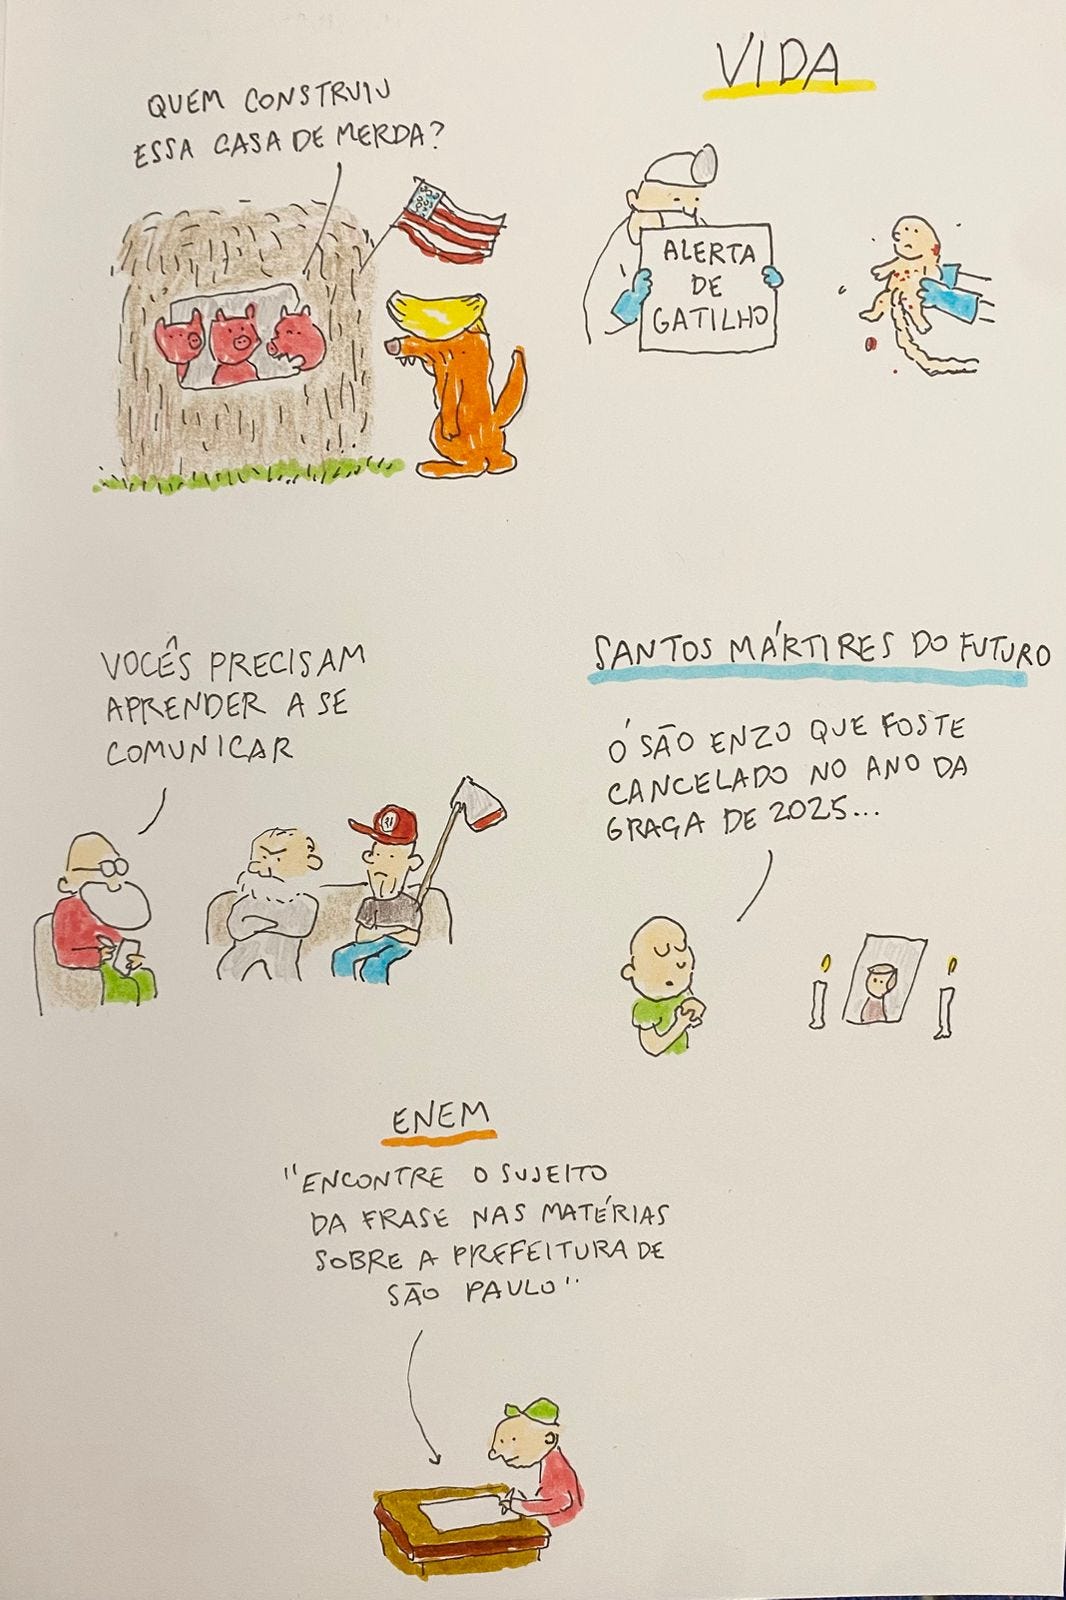 QUEM CONSTRUIU
ESSA CASA DE MERDA?
VIDA
ALERTA
DE
GATILHO
VOCÊS PRECISAM
APRENDER A SE
COMUNICAR
SANTOS MÁRTIRES DO FUTURO
Ó SÃO ENZO QUE FOSTE
CANCELADO NO ANO DA
GRAÇA DE 2025...
ENEM
"ENCONTRE O SUJEITO
DA FRASE NAS MATÉRIAS
SOBRE A PREFEITURA DE
SÃO PAULO"